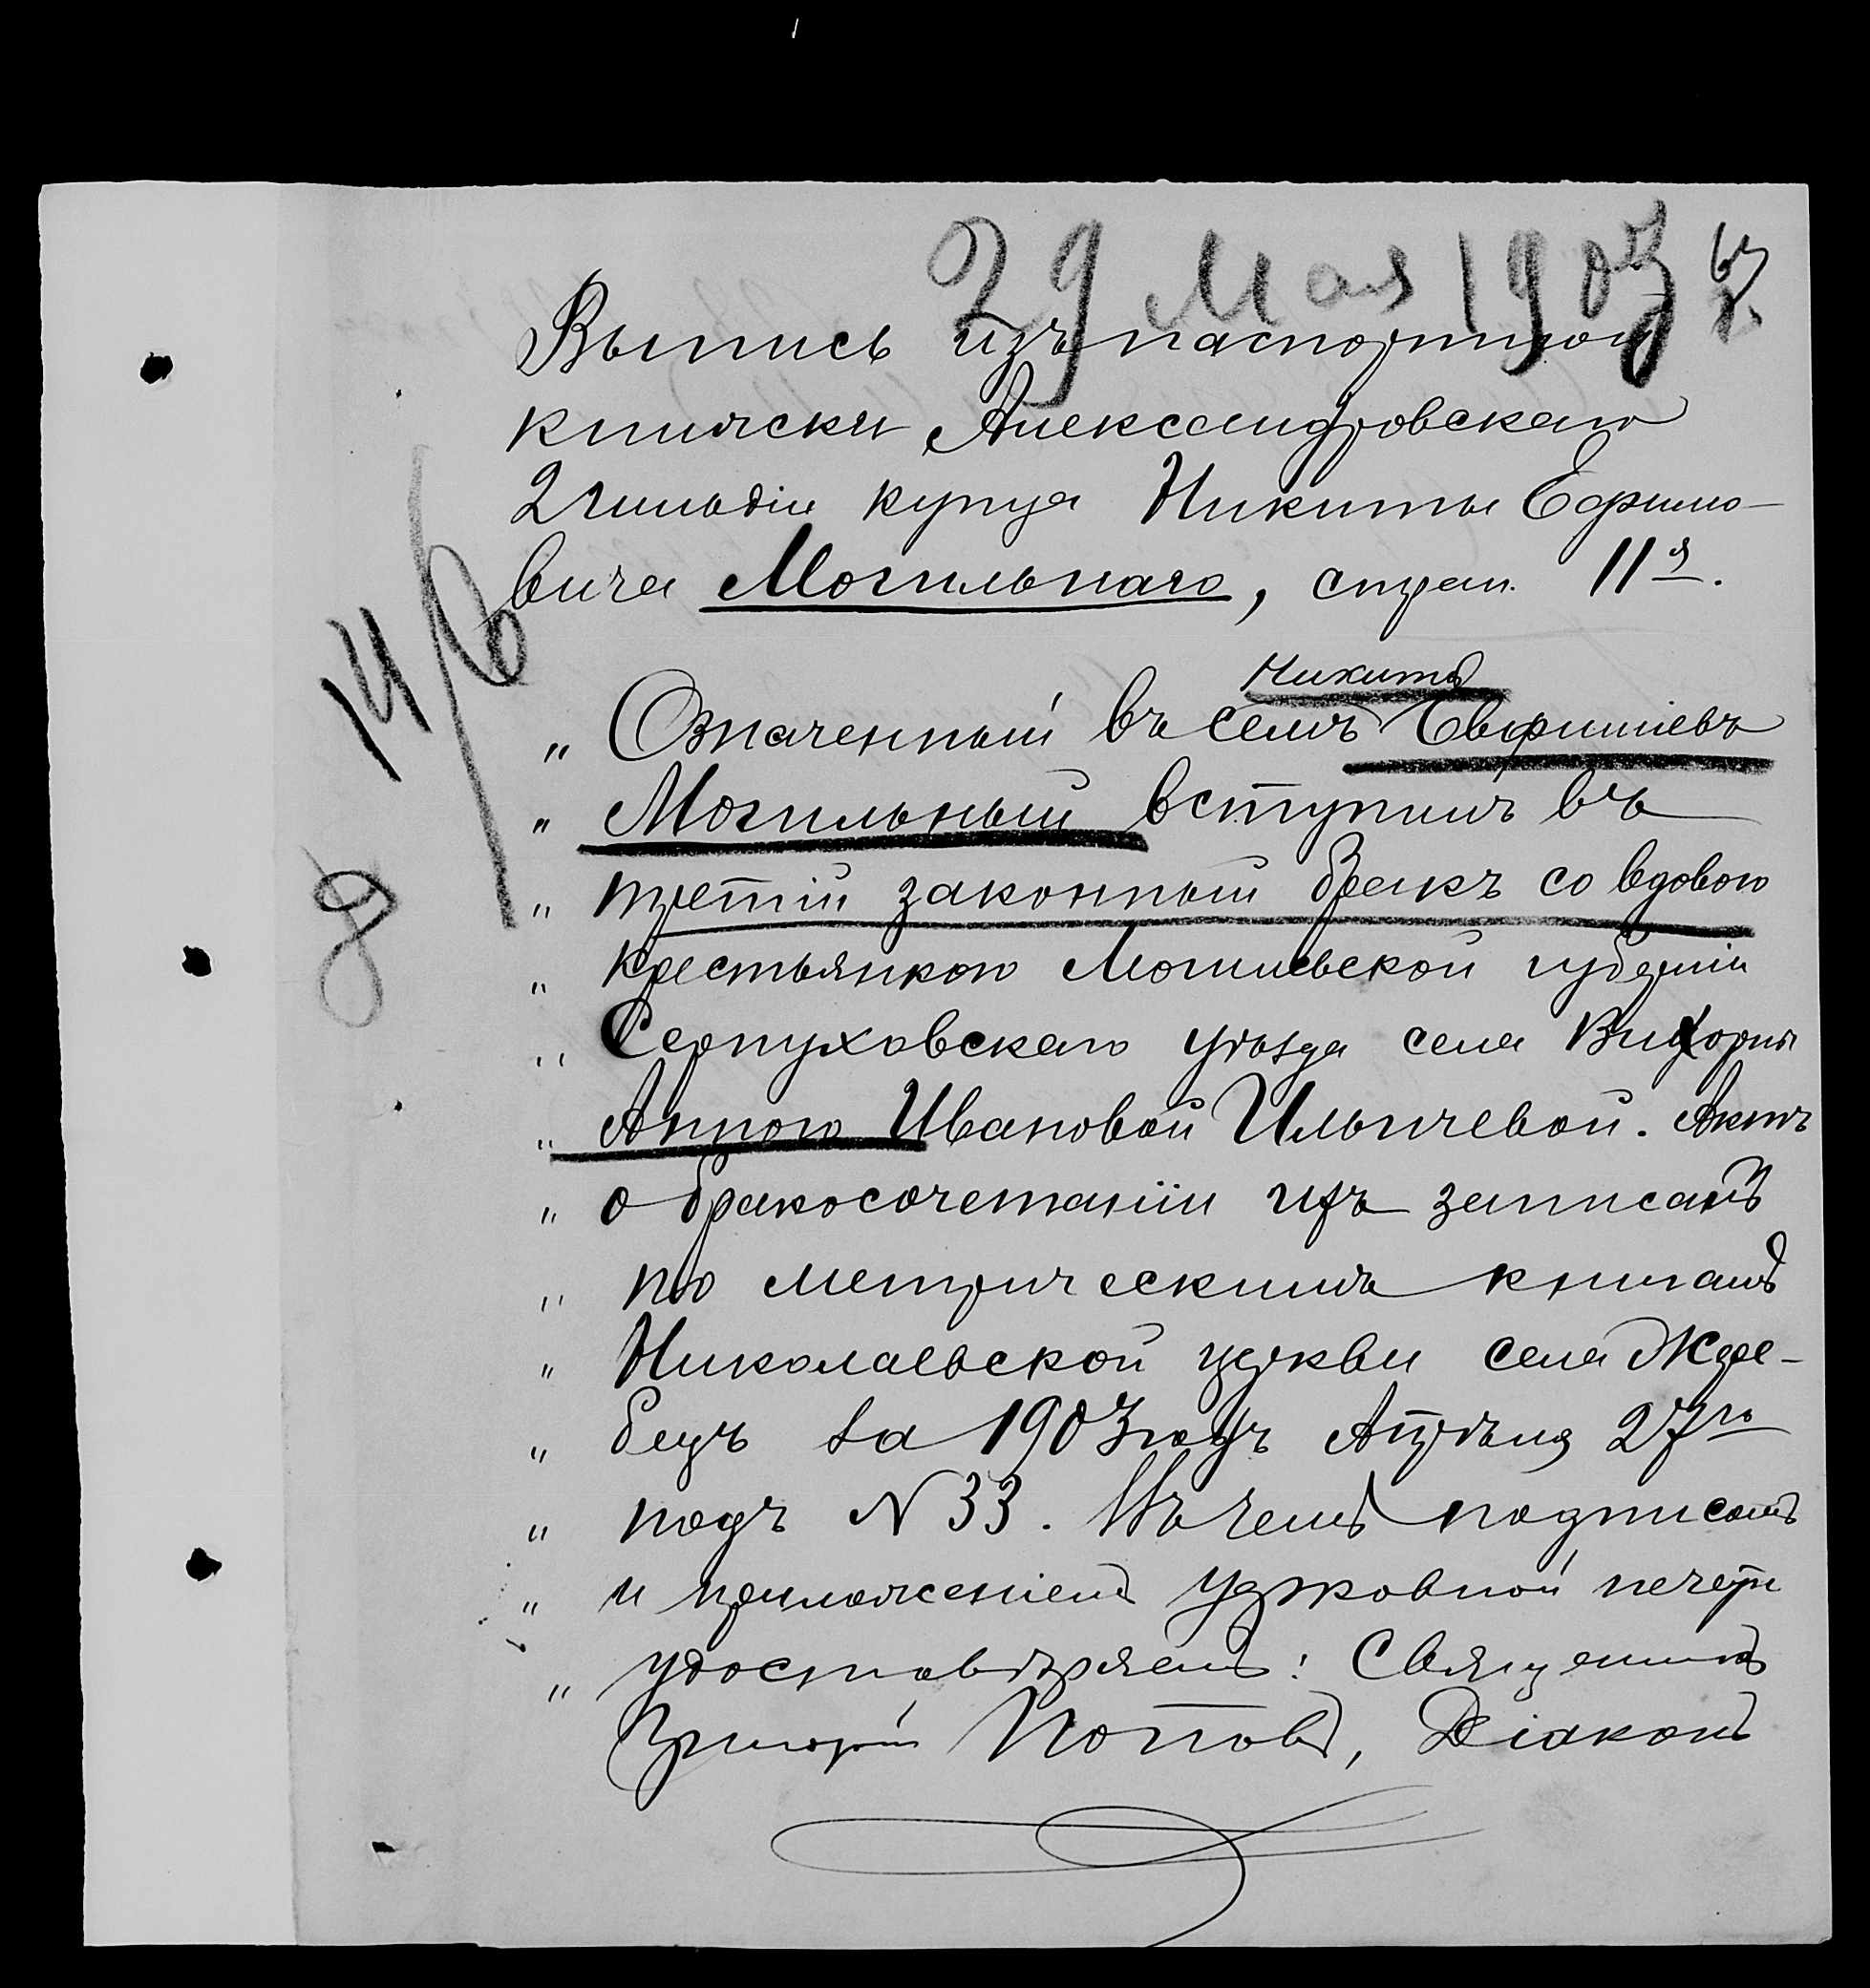 29 Мая 1903
Выпись изъ паспортной
книжски Александровскаго
2 гильдіи купца Никиты Ефимо-
вича Могильнаго, стран. 11я.
14/6
Никита
„ Означенный въ семъ Евфиміевъ
„ Могильный вступилъ въ
„ третій законный бракъ со вдовою
„ крестьянкою Могилевской губерніи
„ Серпуховскаго уѣзда села
„ Анною Ивановой Ильичевой. Актъ
„ о бракосочетаніи ихъ записанъ
„ по метрическимъ книгамъ
„ Николаевской церкви села Жере-
„ бецъ за 1903 годъ Апрѣля 27го
„ подъ N 33. Въ чемъ подписомъ
„ и приложеніемъ церковной печати
„ удостовѣряемъ: Священникъ
Григорій Поповъ, Діаконъ